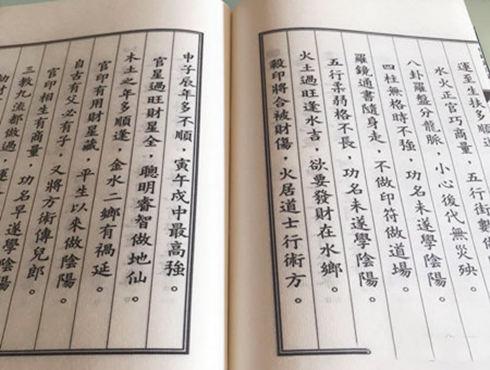 運至生扶多順
水火正官巧商量，五行
八卦羅盤分龍脈，小心後代無災殃。
四柱無格時不強，功名未遂學陰陽。
羅鏡通書隨身走，不做印符做道場。
五行柔弱格不長，功名未遂學陰陽。
火土過旺逢水吉，欲要發財在水鄉。
殺印將合被財傷，火居道士行術方。
申子辰年多不順，寅午戌中最高強。
官星過旺財星全，聰明睿智做地仙。
木土之年多順逢，金水二鄉有禍延。
官印有用財星藏，平生以來做陰陽。
自古有父必有子，又將方術傳兒郎。
官印相生有商量，功名早遂學陰陽。
三教九流都做過，運